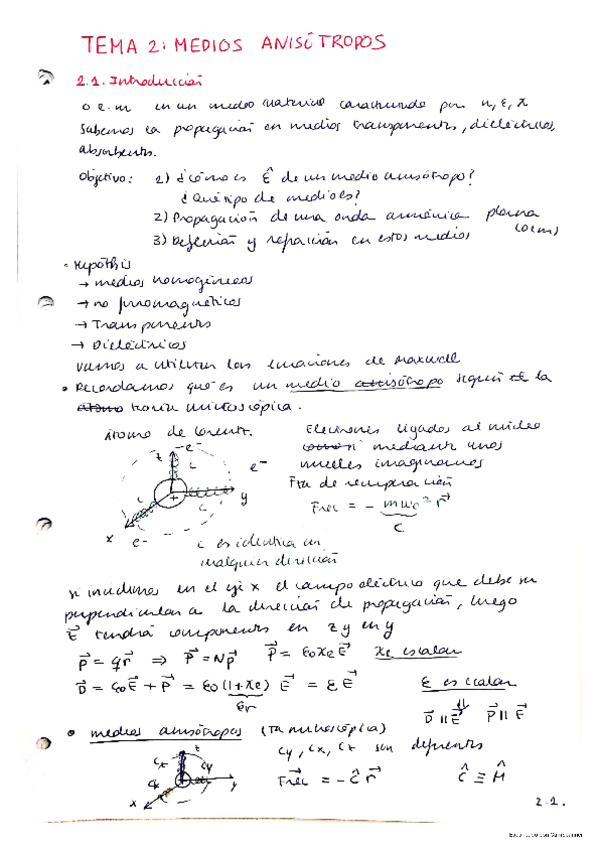 TEMA 2: MEDIOS ANISÓTROPOS
2.1. Introducción
o e.m en un medio material caracterizado por n, ε, χ
Sabemos la propagación en medios transparentes, dieléctricos,
absorbentes.
Objetivo: 1) ¿Cómo es ε̂ de un medio anisótropo?
¿Qué tipo de medio es?
2) Propagación de una onda armónica plana
(oem)
3) Reflexión y refracción en estos medios
• Hipótesis
→ medios homogéneos
→ no ferromagnéticos
→ Transparentes
→ Dieléctricos
Vamos a utilizar las ecuaciones de Maxwell
• Recordamos qué es un medio anisótropo según la
átomo teoría microscópica.
átomo de Lorentz.
Electrones ligados al núcleo
mediante unos
muelles imaginarios
Fza de recuperación
F⃗rec = - mω₀² r⃗
C
z e⁻
e⁻
c c
+ y
x e⁻
c es idéntica en
cualquier dirección
si incidimos en el eje x el campo eléctrico que debe ser
perpendicular a la dirección de propagación, luego
E⃗ tendrá componentes en z y en y
p⃗ = q r⃗ ⇒ P⃗ = N p⃗ P⃗ = ε₀ χe E⃗ χe escalar
D⃗ = ε₀ E⃗ + P⃗ = ε₀ (1+χe) E⃗ = ε E⃗ ε es escalar
εr
⇓
D⃗ ∥ E⃗ P⃗ ∥ E⃗
• medios anisótropos (Ta microscópica)
cy, cx, cz son diferentes
F⃗rec = - Ĉ r⃗ Ĉ ≡ M̂
z
cz cy
cx
y
x
2.1.